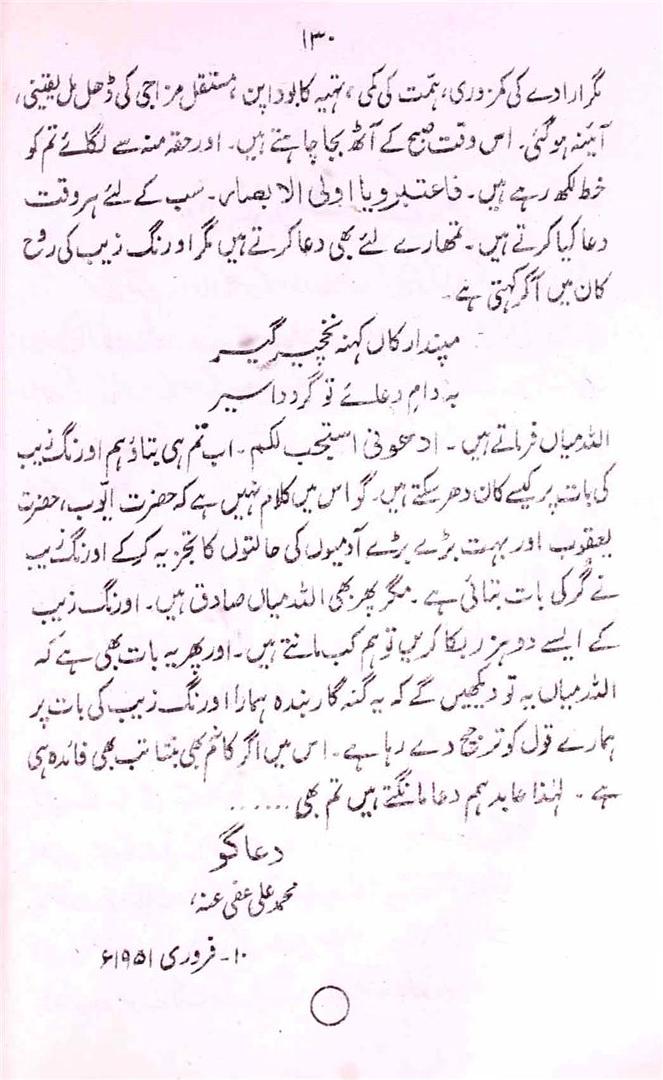 ۱۳۰
مگر ارادے کی کمزوری، ہمّت کی کمی، تہیہ کا بودا پن، مستقل مزاجی کی ڈھل مل یقینی،
آئینہ ہو گئی۔ اس وقت صبح کے آٹھ بجا چاہتے ہیں۔ اور حقہ منہ سے لگائے تم کو
خط لکھ رہے ہیں۔ فاعتبرو یا اولی الابصار۔ سب کے لئے ہر وقت
دعا کیا کرتے ہیں۔ تمھارے لئے بھی دعا کرتے ہیں مگر اورنگ زیب کی روح
کان میں آکر کہتی ہے۔
مپندار کاں کہنہ نخچیر گیر
بہ دامِ دعائے تو گردد اسیر
اللہ میاں فرماتے ہیں۔ ادعونی استجب لکم۔ اب تم ہی بتاؤ ہم اورنگ زیب
کی بات پر کیسے کان دھر سکتے ہیں۔ گو اس میں کلام نہیں ہے کہ حضرت ایّوب، حضرت
یعقوب اور بہت بڑے بڑے آدمیوں کی حالتوں کا تجزیہ کرکے اورنگ زیب
نے گُر کی بات بتائی ہے۔ مگر پھر بھی اللہ میاں صادق ہیں۔ اورنگ زیب
کے ایسے دو ہزر بکا کریں تو ہم کب مانتے ہیں۔ اور پھر یہ بات بھی ہے کہ
اللہ میاں یہ تو دیکھیں گے کہ یہ گنہ گار بندہ ہمارا اورنگ زیب کی بات پر
ہمارے قول کو ترجیح دے رہا ہے۔ اس میں اگر کام بھی بنتا تب بھی فائدہ ہی
ہے۔ لہٰذا عابد ہم دعا مانگتے ہیں تم بھی ......
دعا گو
محمد علی عفی عنہ،
۱۰۔ فروری ۱۹۵۱ء